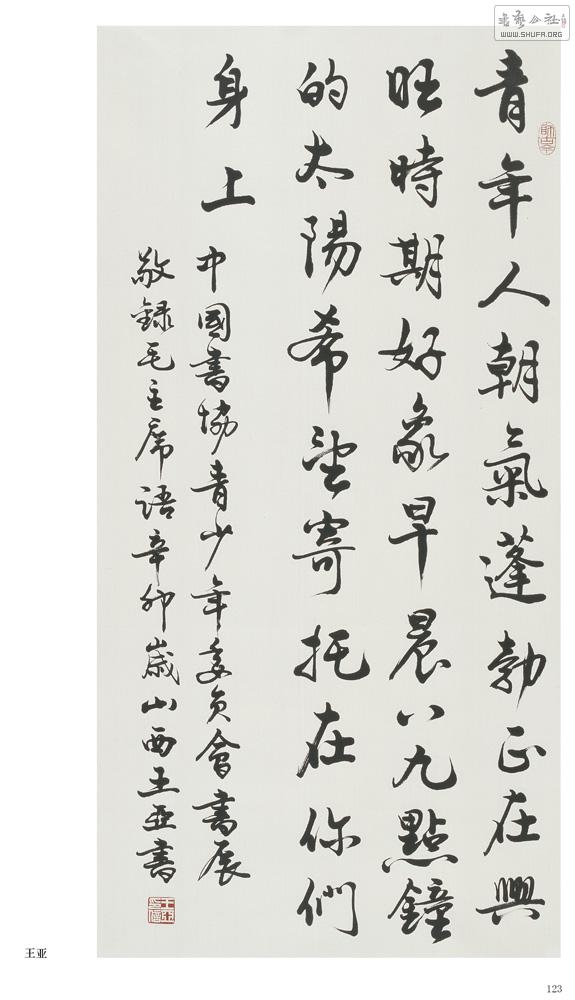 書艺公社
WWW.SHUFA.ORG
青年人朝氣蓬勃正在興
旺時期好象早晨八九點鐘
的太陽希望寄托在你們
身上
中國書協青少年委員會書展
敬録毛主席語辛卯歲山西王亚書
王亚
123